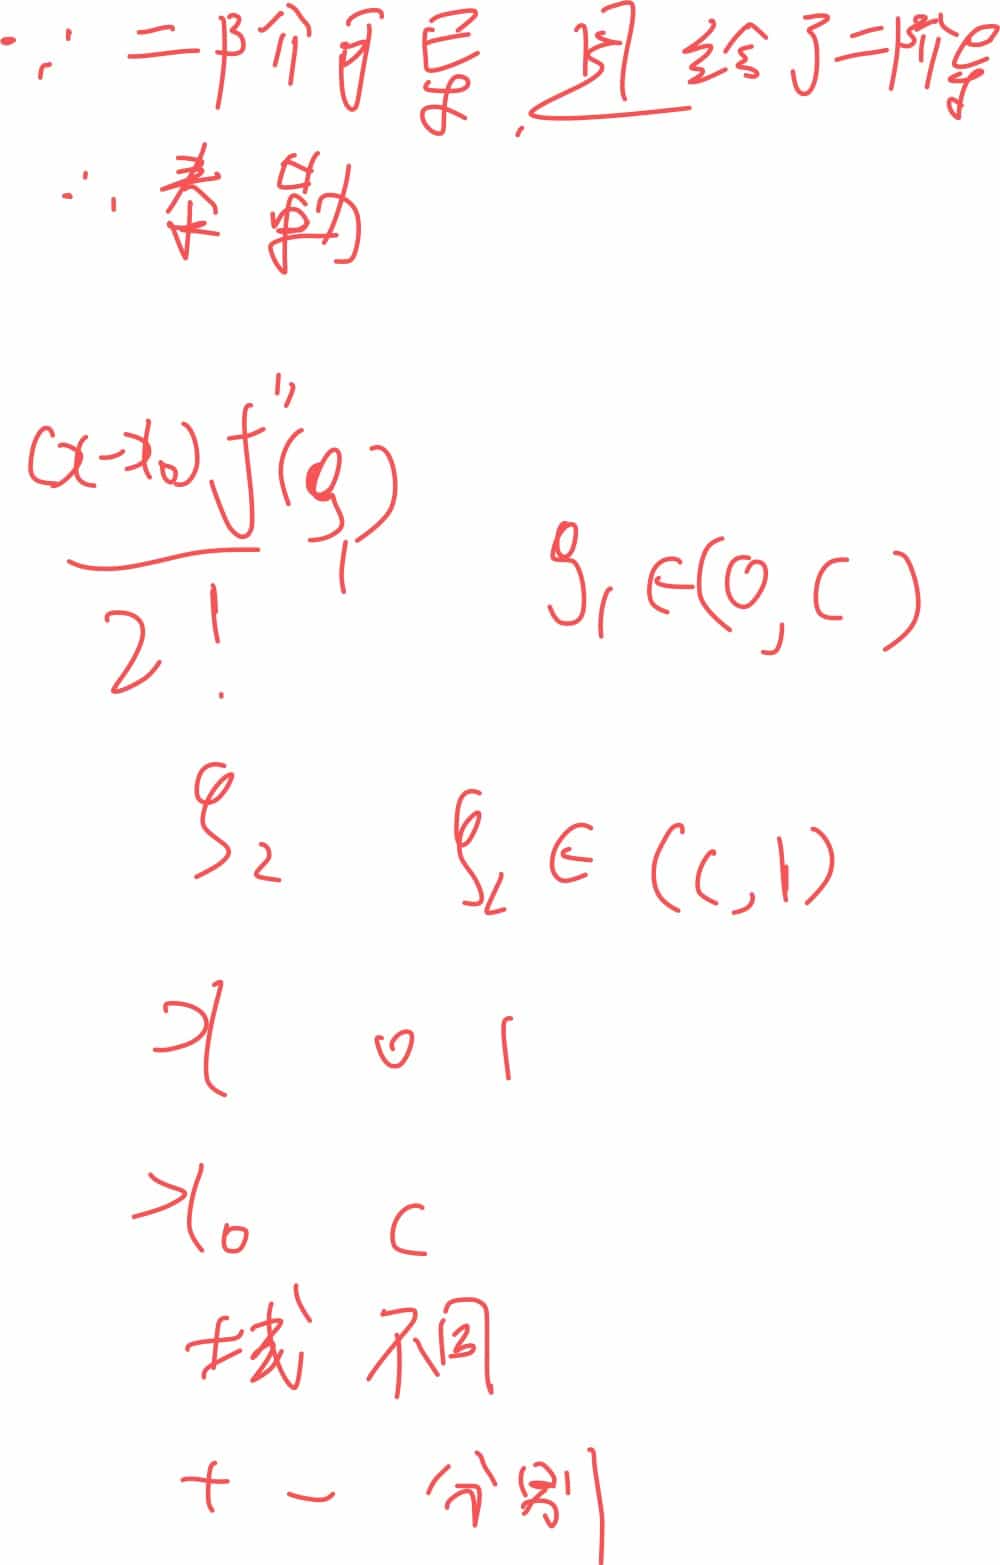 ∵ 二阶可导 且给了二阶导
∴ 泰勒
(x-x₀)f''(ξ₁)
2!
ξ₁∈(0,c)
ξ₂ ξ₂∈(c,1)
x 0 1
x₀ c
域 不同
+ - 分别